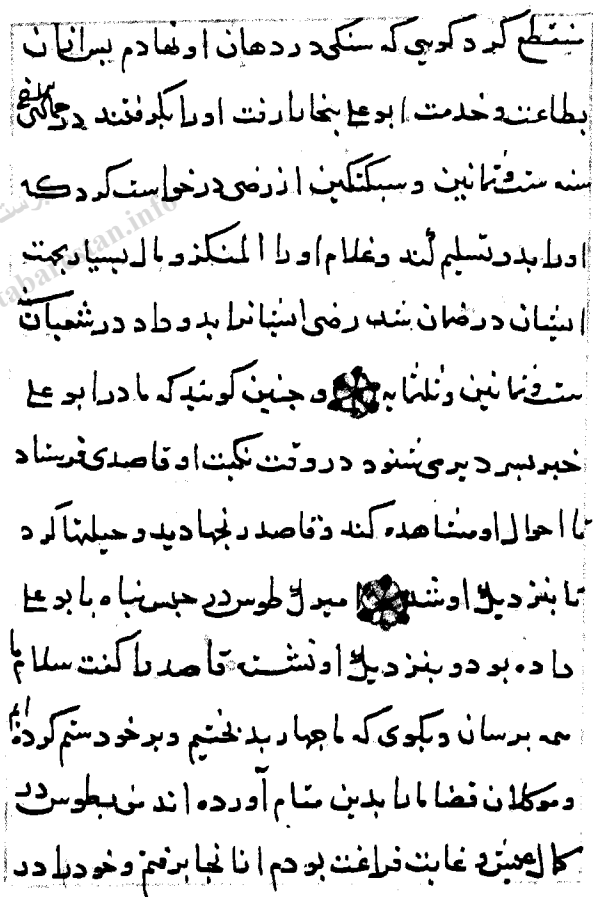 منقطع کرد کویی که سنکی در دهان او نهادم بس ازان
بطاعت و خدمت ابو علی بنجارا رفت او را بکرفتند در جمالی
سنه ست و ثمانین و سبکتکین از رضی درخواست کرد که
او را بدو تسلیم کند و غلام او را المنکز و مال بسیار بجهت
ایشان در ضمان شد رضی ایشانرا بدو داد در شعبان
ست و ثمانین و ثلثمایه و جنین کویند که مادر ابو علی
خبر بسر دیر می شنود در وقت نکبت او قاصدی فرستاد
تا احوال او مشاهده کند و قاصد رنجها دید و حیلتها کرد
تا بنزدیک او شد امیرک طوس در حبس بناه با بو علی
داده بود و بنزدیک او نشسته قاصد را کفت سلام ما
همه برسان و بکوی که ما جهار بدبختیم و بر خود ستم کرده ایم
و موکلان قضا ما را بدین مقام آورده اند من بطوس در
کمال عیش و غایت فراغت بودم ازانجا برفتم و خود را در